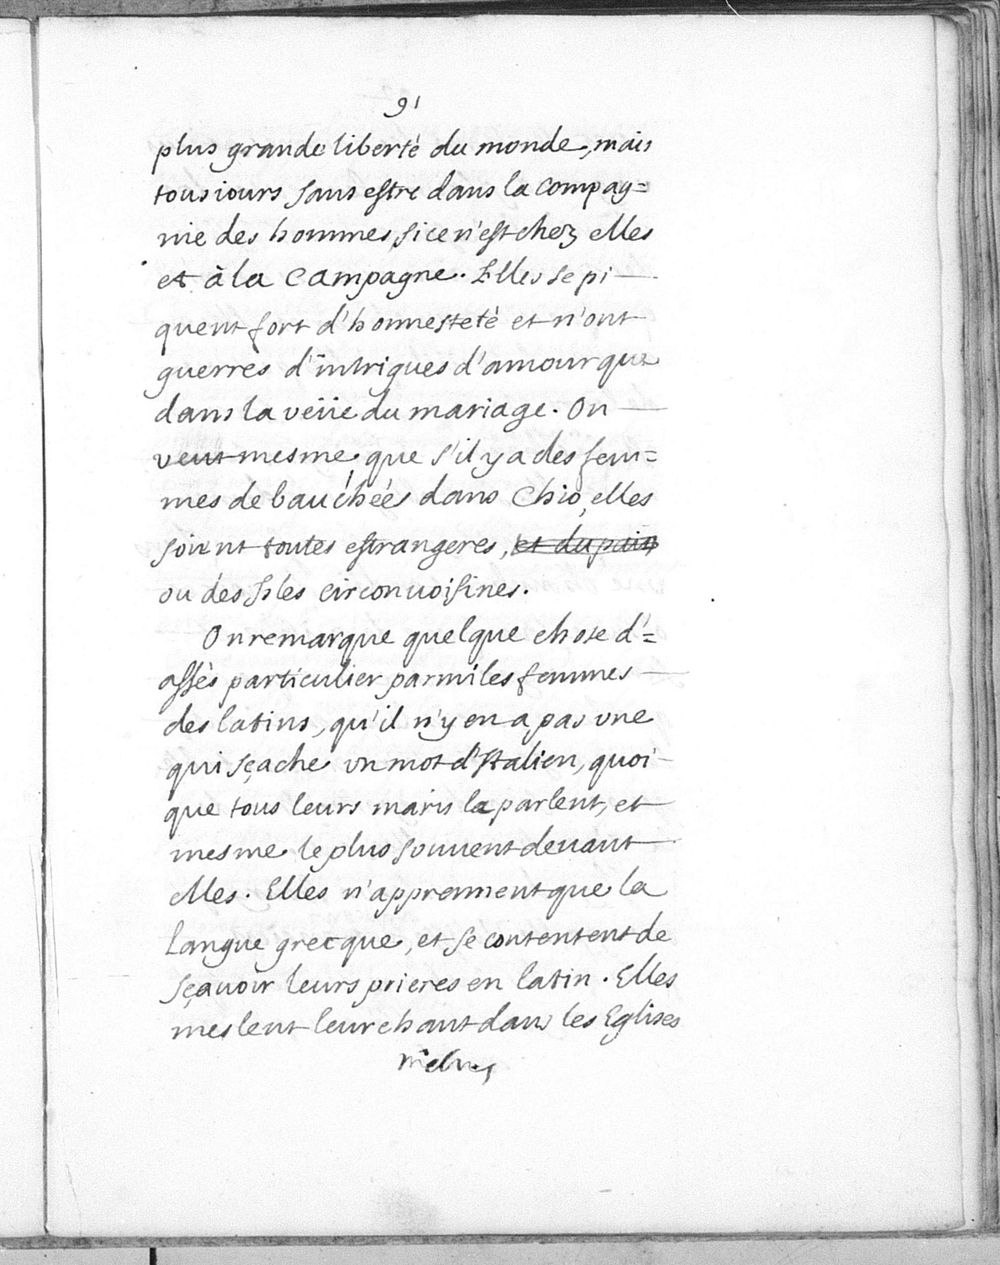 91
plus grande liberté du monde, mais
tousiours sans estre dans la compag=
nie des hommes, si ce n'est chez elles
et à la campagne. Elles se pi
quent fort d'honnesteté et n'ont
guerres d'intrigues d'amour que
dans la veüe du mariage. On
veut mesme que s'il y a des fem=
mes debauchées dans Chio, elles
soient toutes estrangeres, et du pais
ou des Isles circonuoisines.
On remarque quelque chose d'=
assés particulier parmi les femmes
des latins, qu'il n'y en a pas vne
qui sçache vn mot d'Italien, quoi
que tous leurs maris le parlent, et
mesme le plus souuent deuant
elles. Elles n'apprennent que la
langue grecque, et se contentent de
sçauoir leurs prieres en latin. Elles
meslent leur chant dans les Eglises